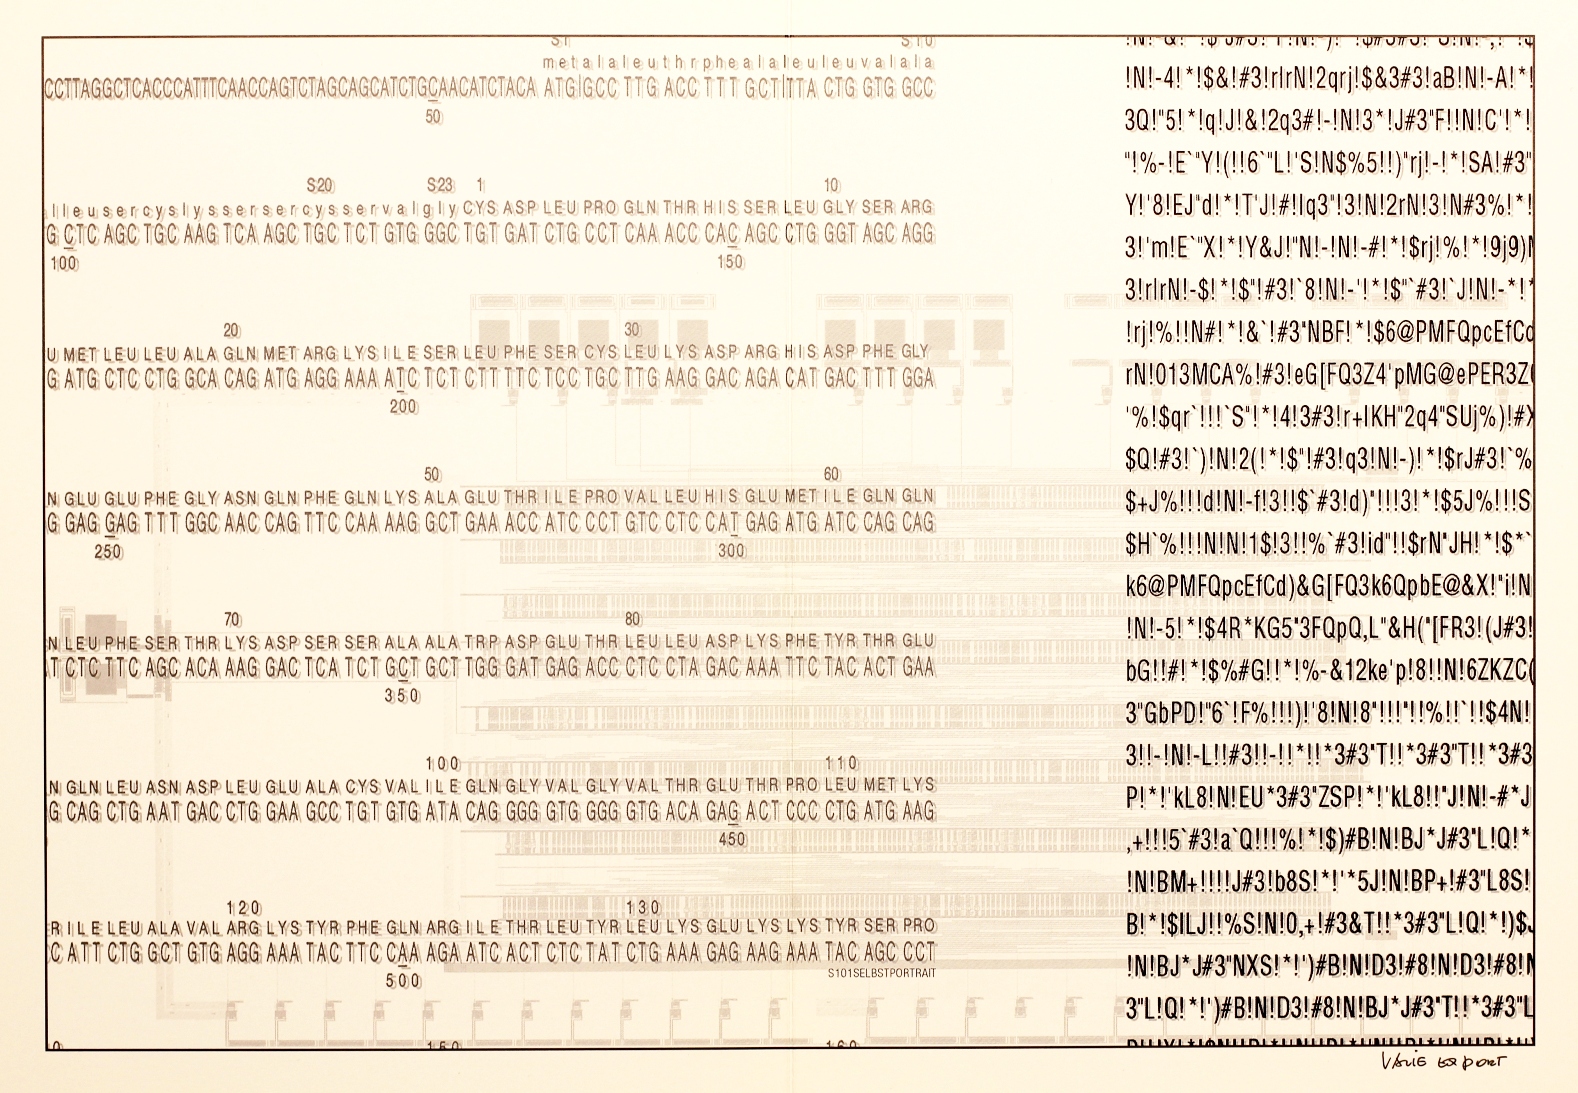 S1 S10
metalaleuthrphealaleuleuvalala
CCTTAGGCTCACCCATTTCAACCAGTCTAGCAGCATCTGCAACATCTACA ATG GCC TTG ACC TTT GCT TTA CTG GTG GCC
50
S20 S23 1 10
lleusercyslyssersercysservalgly CYS ASP LEU PRO GLN THR HIS SER LEU GLY SER ARG
G CTC AGC TGC AAG TCA AGC TGC TCT GTG GGC TGT GAT CTG CCT CAA ACC CAC AGC CTG GGT AGC AGG
100 150
20 30
U MET LEU LEU ALA GLN MET ARG LYS ILE SER LEU PHE SER CYS LEU LYS ASP ARG HIS ASP PHE GLY
G ATG CTC CTG GCA CAG ATG AGG AAA ATC TCT CTT TTC TCC TGC TTG AAG GAC AGA CAT GAC TTT GGA
200
50 60
N GLU GLU PHE GLY ASN GLN PHE GLN LYS ALA GLU THR ILE PRO VAL LEU HIS GLU MET ILE GLN GLN
G GAG GAG TTT GGC AAC CAG TTC CAA AAG GCT GAA ACC ATC CCT GTC CTC CAT GAG ATG ATC CAG CAG
250 300
70 80
N LEU PHE SER THR LYS ASP SER SER ALA ALA TRP ASP GLU THR LEU LEU ASP LYS PHE TYR THR GLU
T CTC TTC AGC ACA AAG GAC TCA TCT GCT GCT TGG GAT GAG ACC CTC CTA GAC AAA TTC TAC ACT GAA
350
100 110
N GLN LEU ASN ASP LEU GLU ALA CYS VAL ILE GLN GLY VAL GLY VAL THR GLU THR PRO LEU MET LYS
G CAG CTG AAT GAC CTG GAA GCC TGT GTG ATA CAG GGG GTG GGG GTG ACA GAG ACT CCC CTG ATG AAG
450
120 130
R ILE LEU ALA VAL ARG LYS TYR PHE GLN ARG ILE THR LEU TYR LEU LYS GLU LYS LYS TYR SER PRO
C ATT CTG GCT GTG AGG AAA TAC TTC CAA AGA ATC ACT CTC TAT CTG AAA GAG AAG AAA TAC AGC CCT
S101SELBSTPORTRAIT
500
150 160
!N!-4!*!$&!#3!rIrN!2qrj!$&3#3!aB!N!-A!*!
3Q!"5!*!q!J!&!2q3#!-!N!3*!J#3"F!!N!C'!*!
"!%-!E`"Y!(!!6`"L!'S!N$%5!!)"rj!-!*!SA!#3"
Y!'8!EJ"d!*!T'J!#!Iq3"!3!N!2rN!3!N#3%!*!
3!'m!E`"X!*!Y&J!"N!-!N!-#!*!$rj!%!*!9j9)N
3!rIrN!-$!*!$"!#3!`8!N!-'!*!$"`#3!`J!N!-*!*
!rj!%!!N#!*!&`!#3"NBF!*!$6@PMFQpcEfCd
rN!013MCA%!#3!eG[FQ3Z4'pMG@ePER3Z(
'%!$qr`!!!`S"!*!4!3#3!r+IKH"2q4"SUj%)!#X
$Q!#3!`)!N!2(!*!$"!#3!q3!N!-)!*!$rJ#3!`%
$+J%!!!d!N!-f!3!!$`#3!d)"!!!3!*!$5J%!!!S
$H`%!!!N!N!1$!3!!%`#3!id"!!$rN"JH!*!$*`
k6@PMFQpcEfCd)&G[FQ3k6QpbE@&X!"i!N
!N!-5!*!$4R*KG5"3FQpQ,L"&H("[FR3!(J#3!
bG!!#!*!$%#G!!*!%-&12ke'p!8!!N!6ZKZC(
3"GbPD!"6`!F%!!!)!'8!N!8"!!!"!!%!!`!!$4N!
3!!-!N!-L!!#3!!-!!*!!*3#3"T!!*3#3"T!!*3#3
P!*!'kL8!N!EU*3#3"ZSP!*!'kL8!!"J!N!-#*J
,+!!!5`#3!a`Q!!!%!*!$)#B!N!BJ*J#3"L!Q!*
!N!BM+!!!!J#3!b8S!*!'*5J!N!BP+!#3"L8S!
B!*!$ILJ!!%S!N!0,+!#3&T!!*3#3"L!Q!*!)$J
!N!BJ*J#3"NXS!*!')#B!N!D3!#8!N!D3!#8!N
3"L!Q!*!')#B!N!D3!#8!N!BJ*J#3"T!!*3#3"L
VALIE EXPORT